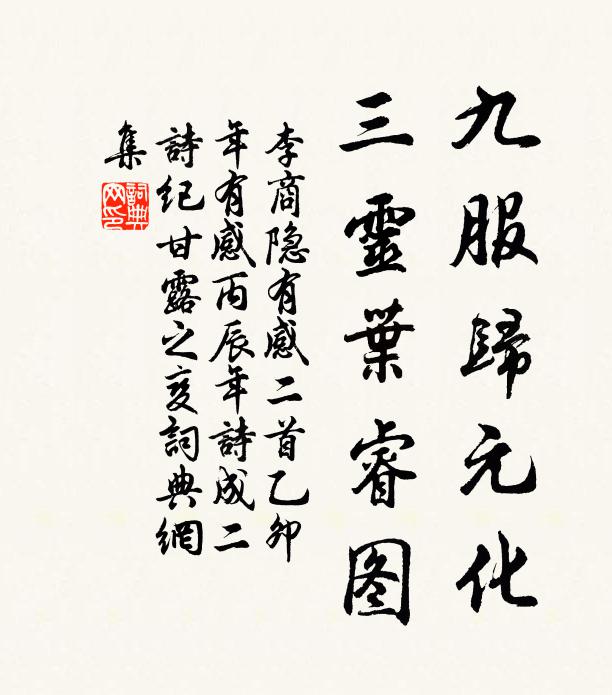 九服歸元化
三靈葉睿图
李商隐有感二首乙卯
年有感丙辰年詩成二
詩纪甘露之变詞典網
集
詞典
网印